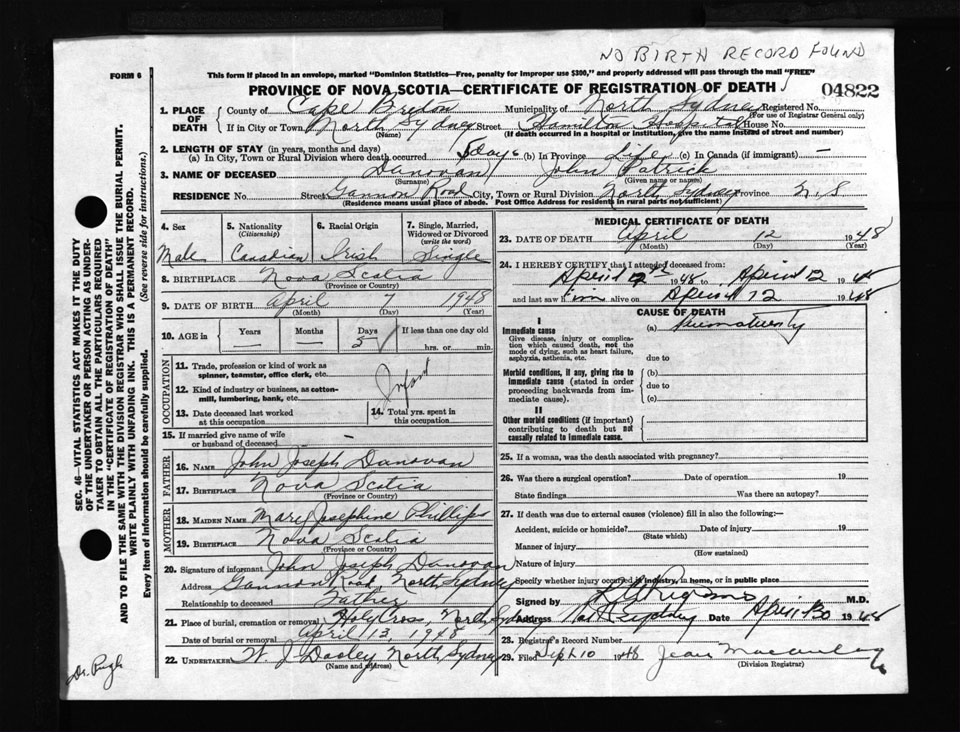 NO BIRTH RECORD FOUND
FORM 6
This form if placed in an envelope, marked "Dominion Statistics—Free, penalty for improper use $300," and properly addressed will pass through the mail "FREE"
PROVINCE OF NOVA SCOTIA—CERTIFICATE OF REGISTRATION OF DEATH
04822
1. PLACE OF DEATH
County of Cape Breton Municipality of North Sydney Registered No.
(For use of Registrar General only)
If in City or Town North Sydney Street Hamilton Hospital House No.
(Name) (If death occurred in a hospital or institution, give the name instead of street and number)
2. LENGTH OF STAY (in years, months and days)
(a) In City, Town or Rural Division where death occurred 5 Days (b) In Province Life (c) In Canada (if immigrant) —
3. NAME OF DECEASED Donovan John Patrick
(Surname) (Given name or names)
RESIDENCE No. Street Gannon Road City, Town or Rural Division North Sydney Province N.S
(Residence means place of abode. Post Office Address for residents in rural parts not sufficient)
4. Sex
Male
5. Nationality
(Citizenship)
Canadian
6. Racial Origin
Irish
7. Single, Married, Widowed or Divorced
(write the word)
Single
8. BIRTHPLACE Nova Scotia
(Province or Country)
9. DATE OF BIRTH April 7 1948
(Month) (Day) (Year)
10. AGE in
Years —
Months —
Days 5
If less than one day old
hrs. or min.
OCCUPATION
11. Trade, profession or kind of work as
spinner, teamster, office clerk, etc.
12. Kind of industry or business, as cotton-
mill, lumbering, bank, etc.
Infant
13. Date deceased last worked
at this occupation
14. Total yrs. spent in
this occupation
15. If married give name of wife
or husband of deceased —
FATHER
16. NAME John Joseph Donovan
17. BIRTHPLACE Nova Scotia
(Province or Country)
MOTHER
18. MAIDEN NAME Mary Josephine Phillips
19. BIRTHPLACE Nova Scotia
(Province or Country)
20. Signature of informant John Joseph Donovan
Address Gannon Road, North Sydney
Relationship to deceased Father
21. Place of burial, cremation or removal Holy Cross, North Sydney
Date of burial or removal April 13, 1948
22. UNDERTAKER W. J. Dooley North Sydney
(Name and address)
MEDICAL CERTIFICATE OF DEATH
23. DATE OF DEATH April 12 1948
(Month) (Day) (Year)
24. I HEREBY CERTIFY that I attended deceased from:
April 1948 to April 12 1948
and last saw him alive on April 12 1948
CAUSE OF DEATH
I
Immediate cause
Give disease, injury or complica-
tion which caused death, not the
mode of dying, such as heart failure,
asphyxia, asthenia, etc.
(a) Prematurity
due to
Morbid conditions, if any, giving rise to
immediate cause (stated in order
proceeding backwards from im-
mediate cause).
(b)
due to
(c)
II
Other morbid conditions (if important)
contributing to death but not
causally related to immediate cause.
25. If a woman, was the death associated with pregnancy?
26. Was there a surgical operation? Date of operation 19
State findings Was there an autopsy?
27. If death was due to external causes (violence) fill in also the following:—
Accident, suicide or homicide? Date of injury 19
(State which)
Manner of injury
(How sustained)
Nature of injury
Specify whether injury occurred in industry, in home, or in public place
Signed by M.D.
Address Date April 30 1948
28. Registrar's Record Number
29. Filed Sept 10 1948 Jean
(Division Registrar)
SEC. 46—VITAL STATISTICS ACT MAKES IT THE DUTY
OF THE UNDERTAKER OR PERSON ACTING AS UNDER-
TAKER TO OBTAIN ALL THE PARTICULARS REQUIRED
IN THE "CERTIFICATE OF REGISTRATION OF DEATH"
AND TO FILE THE SAME WITH THE DIVISION REGISTRAR WHO SHALL ISSUE THE BURIAL PERMIT.
WRITE PLAINLY WITH UNFADING INK. THIS IS A PERMANENT RECORD.
Every item of information should be carefully supplied. (See reverse side for instructions.)
Dr. Pugh